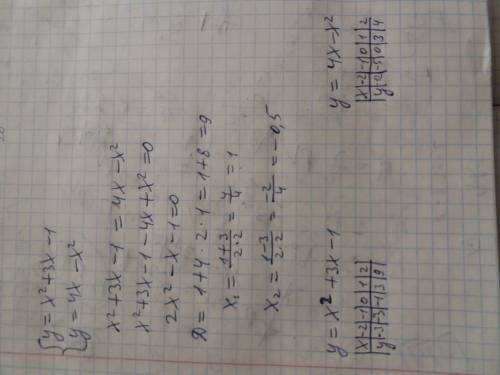 {y = x² + 3x - 1
{y = 4x - x²
x² + 3x - 1 = 4x - x²
x² + 3x - 1 - 4x + x² = 0
2x² - x - 1 = 0
D = 1 + 4 · 2 · 1 = 1 + 8 = 9
x₁ = (1+3)/(2·2) = 4/4 = 1
x₂ = (1-3)/(2·2) = -2/4 = -0,5
y = x² + 3x - 1
|x|-2|-1|0|1|2|
|y|-3|-3|-1|3|9|
y = 4x - x²
|x|-2|-1|0|1|2|